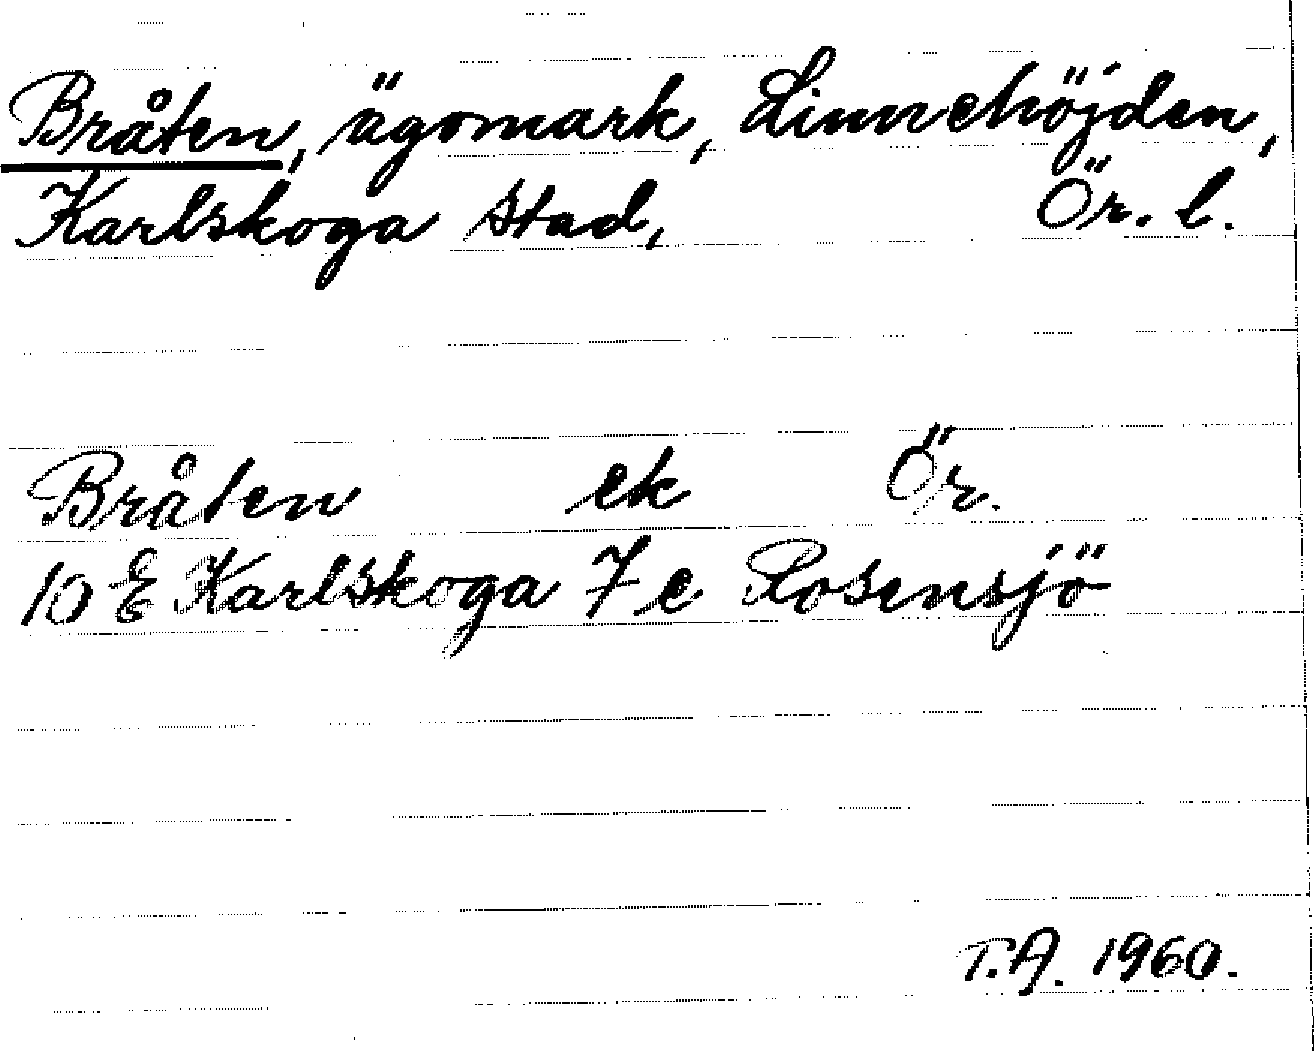 Bråten, ägomark, Linnehöjden,
Karlskoga stad, Ör. l.
Bråten ek Ör.
10 E Karlskoga 7 e Rosensjö
T.A. 1960.